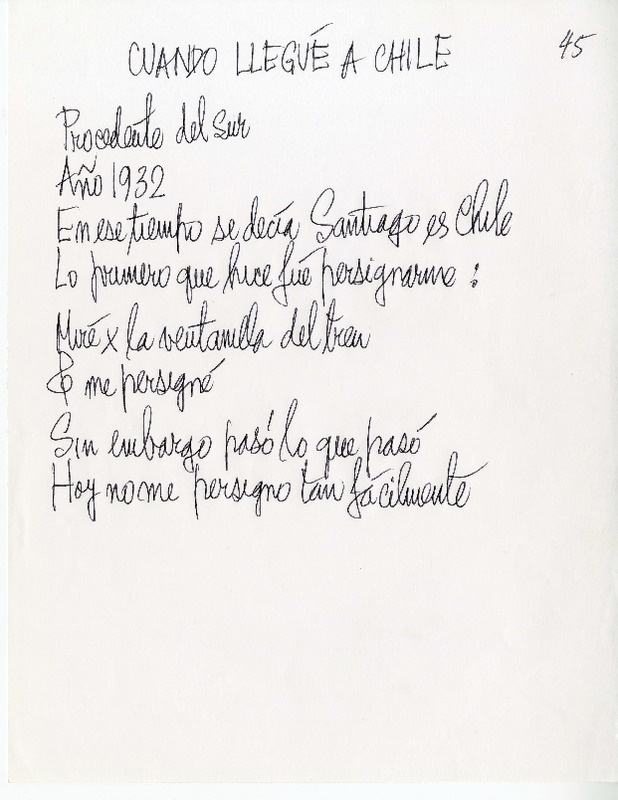 CUANDO LLEGUÉ A CHILE
45
Procedente del sur
Año 1932
En ese tiempo se decía Santiago es Chile
Lo primero que hice fué persignarme :
Miré x la ventanilla del tren
& me persigné
Sin embargo pasó lo que pasó
Hoy no me persigno tan fácilmente